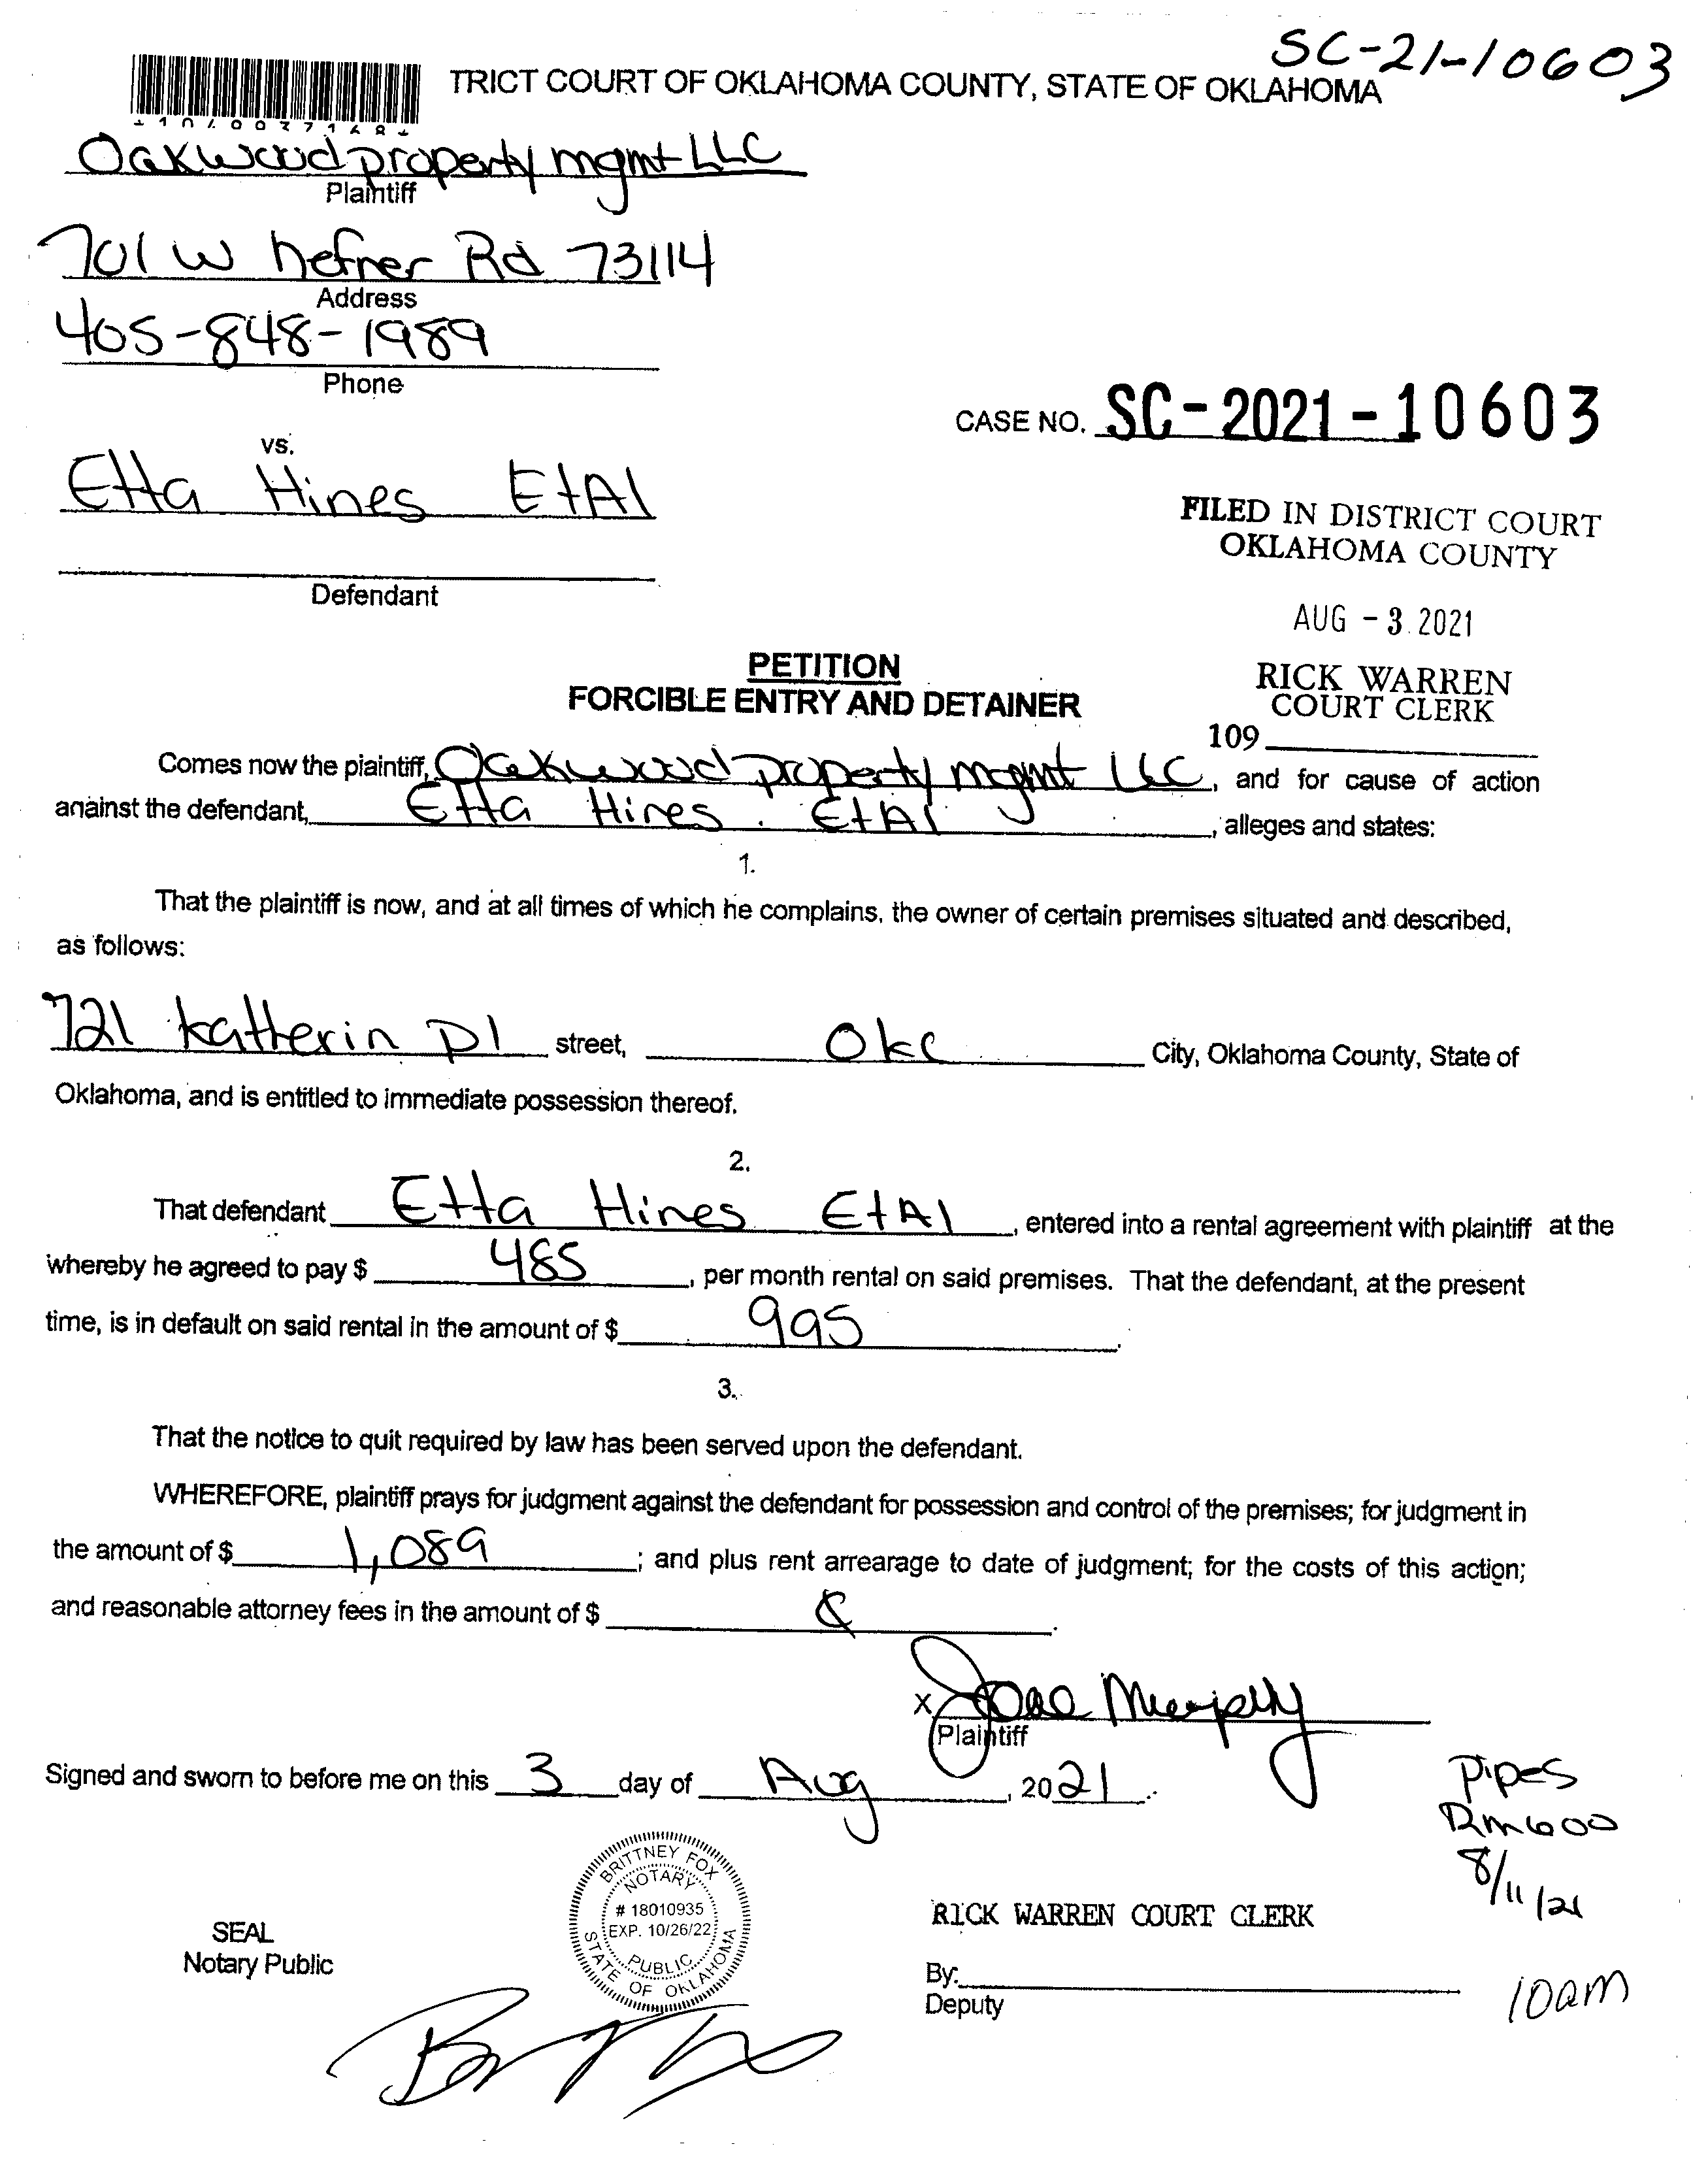 SC-21-10603
TRICT COURT OF OKLAHOMA COUNTY, STATE OF OKLAHOMA
Oakwood property mgmt LLC
Plaintiff
701 W hefner Rd 73114
Address
405-848-1989
Phone
CASE NO. SC-2021-10603
vs.
Etta Hines EtAl
FILED IN DISTRICT COURT
OKLAHOMA COUNTY
Defendant
AUG -3 2021
PETITION
FORCIBLE ENTRY AND DETAINER
RICK WARREN
COURT CLERK
109
Comes now the plaintiff, Oakwood property mgmt LLC, and for cause of action
against the defendant, Etta Hines. EtAl, alleges and states:
1.
That the plaintiff is now, and at all times of which he complains, the owner of certain premises situated and described,
as follows:
721 katherin pl street, Okc City, Oklahoma County, State of
Oklahoma, and is entitled to immediate possession thereof.
2.
That defendant Etta Hines EtAl, entered into a rental agreement with plaintiff at the
whereby he agreed to pay $ 485, per month rental on said premises. That the defendant, at the present
time, is in default on said rental in the amount of $ 995.
3.
That the notice to quit required by law has been served upon the defendant.
WHEREFORE, plaintiff prays for judgment against the defendant for possession and control of the premises; for judgment in
the amount of $ 1,089; and plus rent arrearage to date of judgment; for the costs of this action;
and reasonable attorney fees in the amount of $
X Murphy
Plaintiff
Signed and sworn to before me on this 3 day of Aug, 2021.
pipes
Rm 600
8/11/21
10am
BRITTNEY FOX
NOTARY
# 18010935
EXP. 10/26/22
PUBLIC
STATE OF OKLAHOMA
SEAL
Notary Public
RICK WARREN COURT CLERK
By:
Deputy